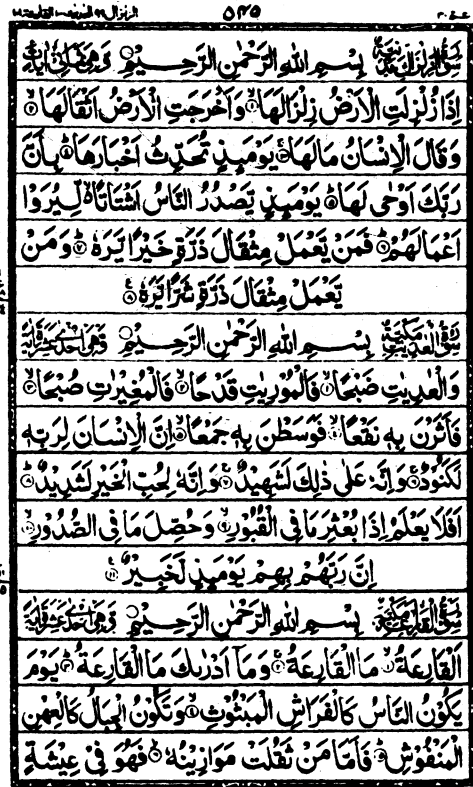 الزلزال ٩٩ ٥٤٥ عم ٣٠
سورة الزلزال بسم الله الرحمن الرحيم وهي ثماني ايات
اِذَا زُلْزِلَتِ الْاَرْضُ زِلْزَالَهَا ۙ۱ وَاَخْرَجَتِ الْاَرْضُ اَثْقَالَهَا ۙ۲
وَقَالَ الْاِنْسَانُ مَالَهَا ۚ۳ يَوْمَئِذٍ تُحَدِّثُ اَخْبَارَهَا ۙ۴ بِاَنَّ
رَبَّكَ اَوْحٰى لَهَا ؕ۵ يَوْمَئِذٍ يَّصْدُرُ النَّاسُ اَشْتَاتًا ۙ۬ لِّيُرَوْا
اَعْمَالَهُمْ ؕ۶ فَمَنْ يَّعْمَلْ مِثْقَالَ ذَرَّةٍ خَيْرًا يَّرَهٗ ؕ۷ وَمَنْ
يَّعْمَلْ مِثْقَالَ ذَرَّةٍ شَرًّا يَّرَهٗ ۸
سورة العديت مكية بِسْمِ اللهِ الرَّحْمٰنِ الرَّحِيْمِ وهي احدى عشرة اية
وَالْعٰدِيٰتِ ضَبْحًا ۙ۱ فَالْمُوْرِيٰتِ قَدْحًا ۙ۲ فَالْمُغِيْرٰتِ صُبْحًا ۙ۳
فَاَثَرْنَ بِهٖ نَقْعًا ۙ۴ فَوَسَطْنَ بِهٖ جَمْعًا ۙ۵ اِنَّ الْاِنْسَانَ لِرَبِّهٖ
لَكَنُوْدٌ ۚ۶ وَاِنَّهٗ عَلٰى ذٰلِكَ لَشَهِيْدٌ ۚ۷ وَاِنَّهٗ لِحُبِّ الْخَيْرِ لَشَدِيْدٌ ؕ۸
اَفَلَا يَعْلَمُ اِذَا بُعْثِرَ مَا فِى الْقُبُوْرِ ۙ۹ وَحُصِّلَ مَا فِى الصُّدُوْرِ ۙ۱۰
اِنَّ رَبَّهُمْ بِهِمْ يَوْمَئِذٍ لَّخَبِيْرٌ ۱۱
سورة القارعة مكية بِسْمِ اللهِ الرَّحْمٰنِ الرَّحِيْمِ وهي احدى عشرة اية
اَلْقَارِعَةُ ۙ۱ مَا الْقَارِعَةُ ۚ۲ وَمَاۤ اَدْرٰىكَ مَا الْقَارِعَةُ ؕ۳ يَوْمَ
يَكُوْنُ النَّاسُ كَالْفَرَاشِ الْمَبْثُوْثِ ۙ۴ وَتَكُوْنُ الْجِبَالُ كَالْعِهْنِ
الْمَنْفُوْشِ ؕ۵ فَاَمَّا مَنْ ثَقُلَتْ مَوَازِيْنُهٗ ۙ۶ فَهُوَ فِىْ عِيْشَةٍ